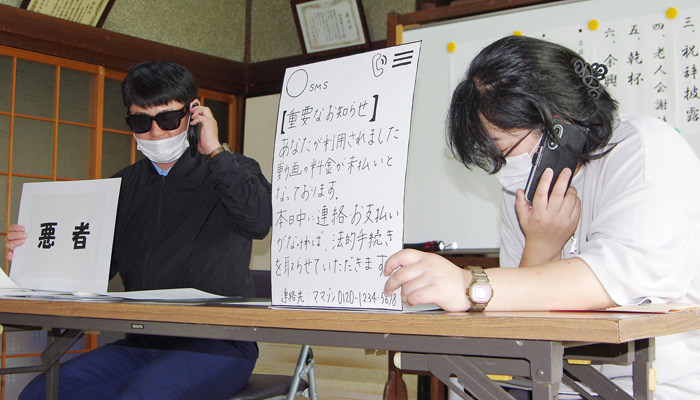 悪者
SMS
【重要なお知らせ】
あなたが利用されました
動画の料金が未払いと
なっております。
本日中に連絡・お支払い
がなければ、法的手続き
を取らせていただきます
連絡先 ママゾン0120-1234-5678
三、祝辞披露
四、老人会謝
五、乾杯
六、余興